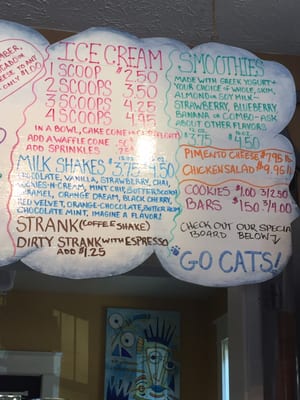 ABER,
ESE TO ANY
ONLY $1.00
ICE CREAM
1 SCOOP $2.50
2 SCOOPS 3.50
3 SCOOPS 4.25
4 SCOOPS 4.95
IN A BOWL, CAKE CONE OR
ADD A WAFFLE CONE
ADD SPRINKLES
MILK SHAKES 3.75 4.50
CHOCOLATE, VANILLA, STRAWBERRY, CHAI
COOKIES-N-CREAM, MINT CHIP, BUTTERSCOTCH
CARAMEL, ORANGE DREAM, BLACK CHERRY
RED VELVET, ORANGE-CHOCOLATE, BUTTER
CHOCOLATE MINT, IMAGINE A FLAVOR!
STRANK (COFFEE SHAKE)
DIRTY STRANK WITH ESPRESSO
ADD $1.25
SMOOTHIES
MADE WITH GREEK YOGURT +
YOUR CHOICE OF WHOLE, SKIM,
ALMOND OR SOY MILK-
STRAWBERRY, BLUEBERRY
BANANA OR COMBO-ASK
ABOUT OTHER FLAVORS
$3.75 $4.50
PIMENTO CHEESE $7.95 lb
CHICKEN SALAD $9.95 lb
COOKIES $1.00 3/2.50
BARS $1.50 3/4.00
CHECK OUT OUR SPECIA
BOARD BELOW
GO CATS!